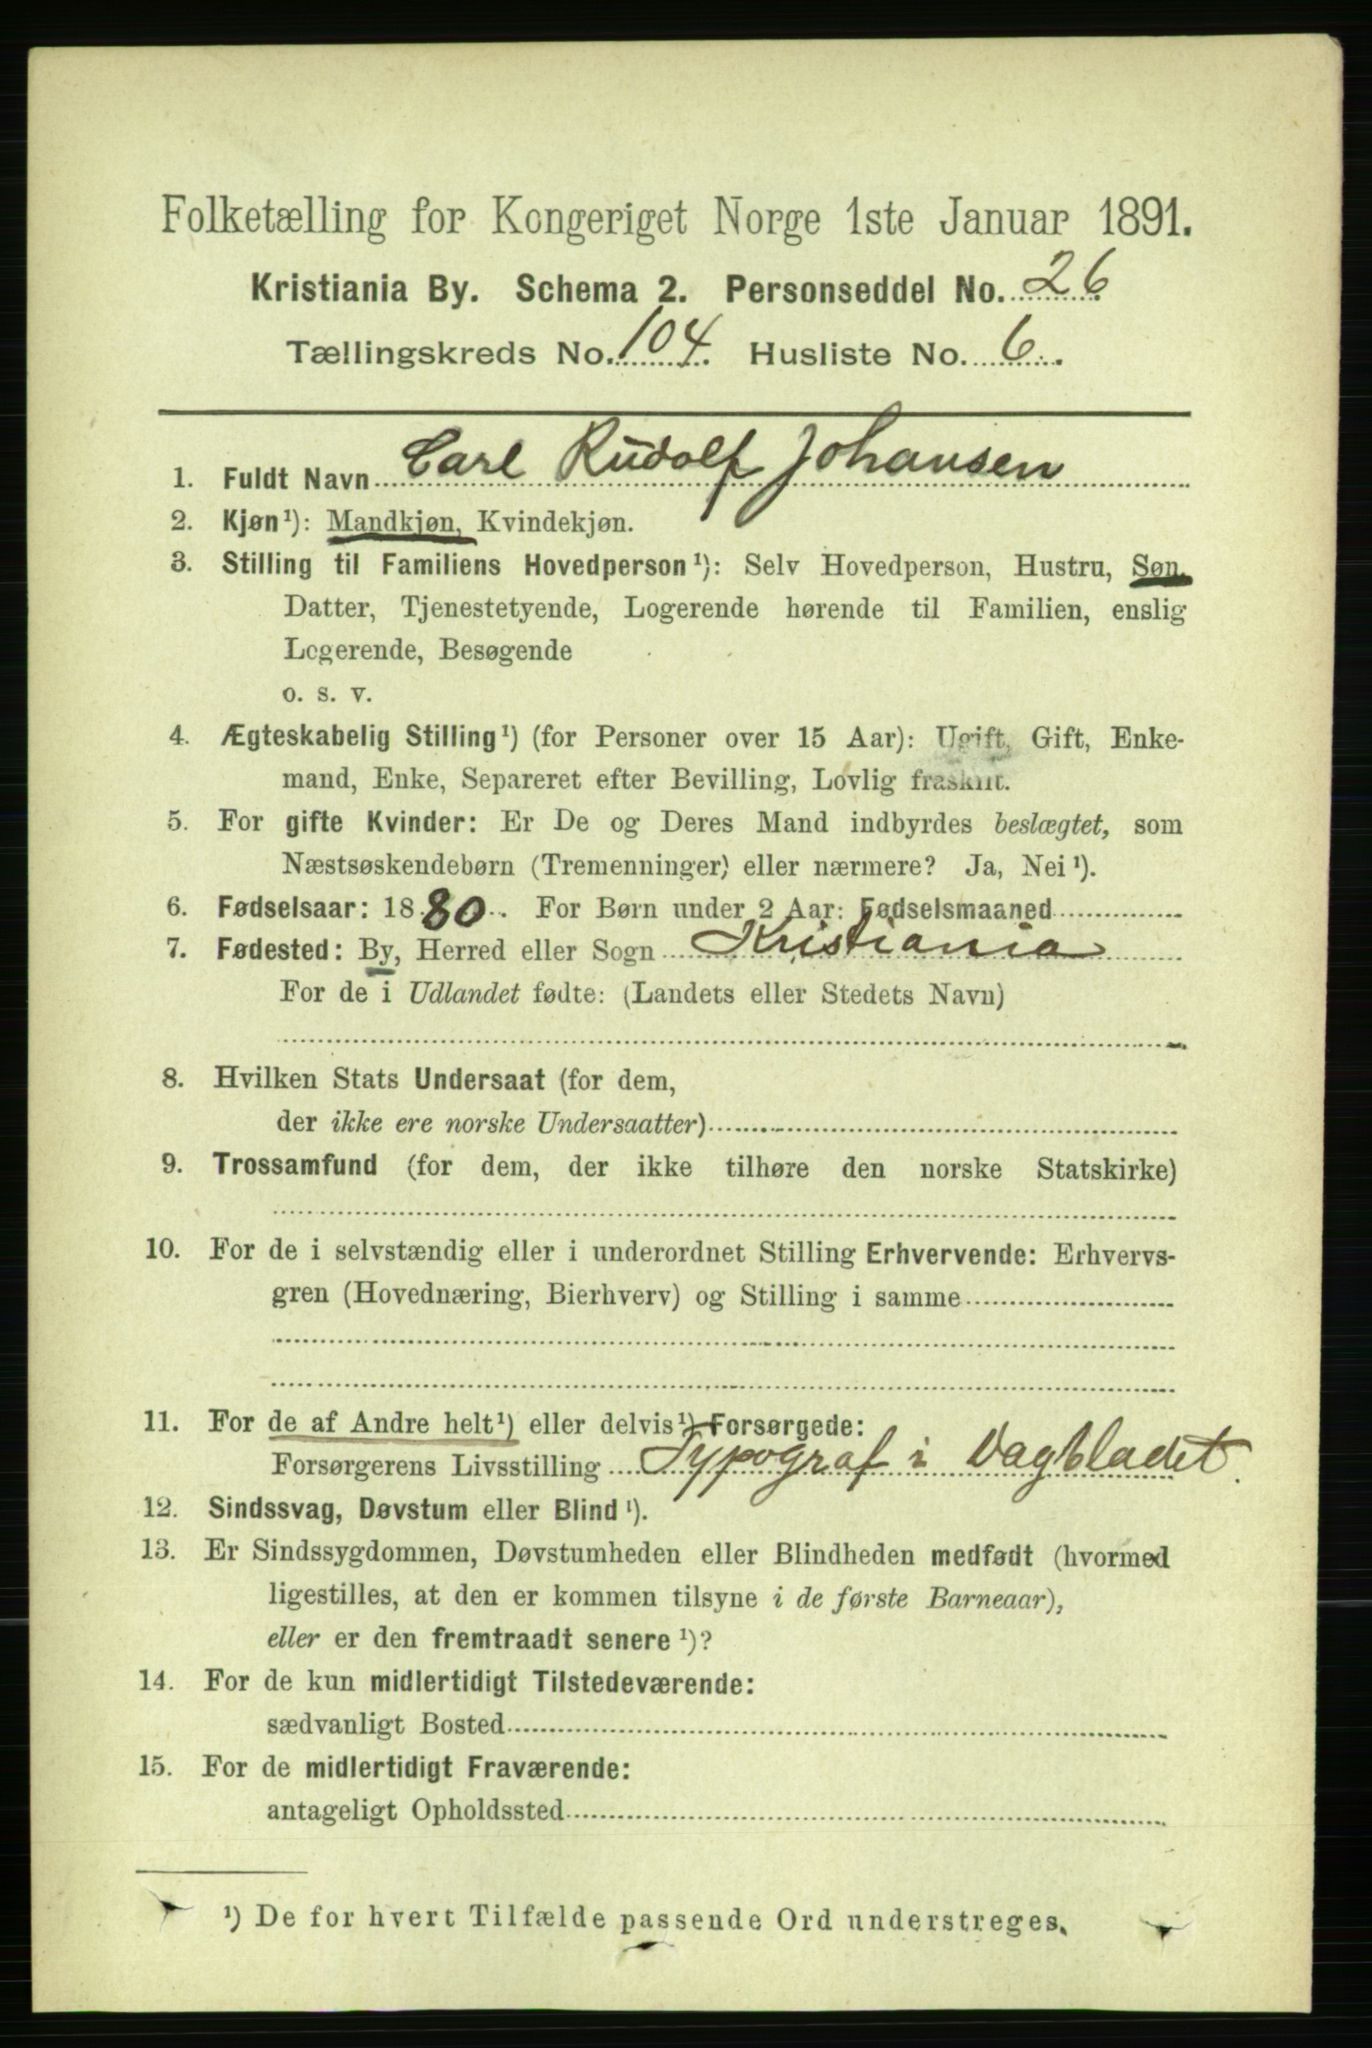 Folketælling for Kongeriget Norge 1ste Januar 1891.
Kristiania By. Schema 2. Personseddel No. 26
Tællingskreds No. 104. Husliste No. 6.
1. Fuldt Navn Carl Rudolf Johansen
2. Kjøn¹): Mandkjøn, Kvindekjøn.
3. Stilling til Familiens Hovedperson¹): Selv Hovedperson, Hustru, Søn,
Datter, Tjenestetyende, Logerende hørende til Familien, enslig
Logerende, Besøgende
o. s. v.
4. Ægteskabelig Stilling¹) (for Personer over 15 Aar): Ugift, Gift, Enke-
mand, Enke, Separeret efter Bevilling, Lovlig fraskilt.
5. For gifte Kvinder: Er De og Deres Mand indbyrdes beslægtet, som
Næstsøskendebørn (Tremenninger) eller nærmere? Ja, Nei¹).
6. Fødselsaar: 1880. For Børn under 2 Aar: Fødselsmaaned
7. Fødested: By, Herred eller Sogn Kristiania
For de i Udlandet fødte: (Landets eller Stedets Navn)
8. Hvilken Stats Undersaat (for dem,
der ikke ere norske Undersaatter)
9. Trossamfund (for dem, der ikke tilhøre den norske Statskirke)
10. For de i selvstændig eller i underordnet Stilling Erhvervende: Erhvervs-
gren (Hovednæring, Bierhverv) og Stilling i samme
11. For de af Andre helt¹) eller delvis¹) Forsørgede:
Forsørgerens Livsstilling Typograf i Dagbladet.
12. Sindssvag, Døvstum eller Blind¹).
13. Er Sindssygdommen, Døvstumheden eller Blindheden medfødt (hvormed
ligestilles, at den er kommen tilsyne i de første Barneaar),
eller er den fremtraadt senere¹)?
14. For de kun midlertidigt Tilstedeværende:
sædvanligt Bosted
15. For de midlertidigt Fraværende:
antageligt Opholdssted
¹) De for hvert Tilfælde passende Ord understreges.